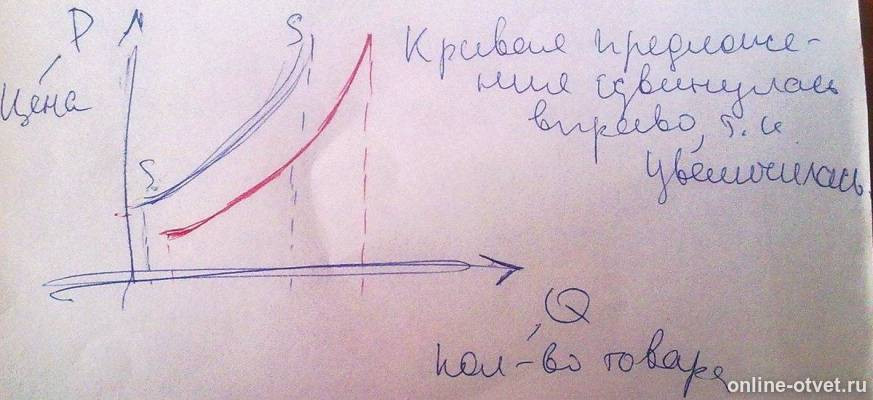 P
Цена
S
S
Кривая предложе-
ния сдвинулась
вправо, т.и
увеличилась.
Q
кол-во товара
online-otvet.ru